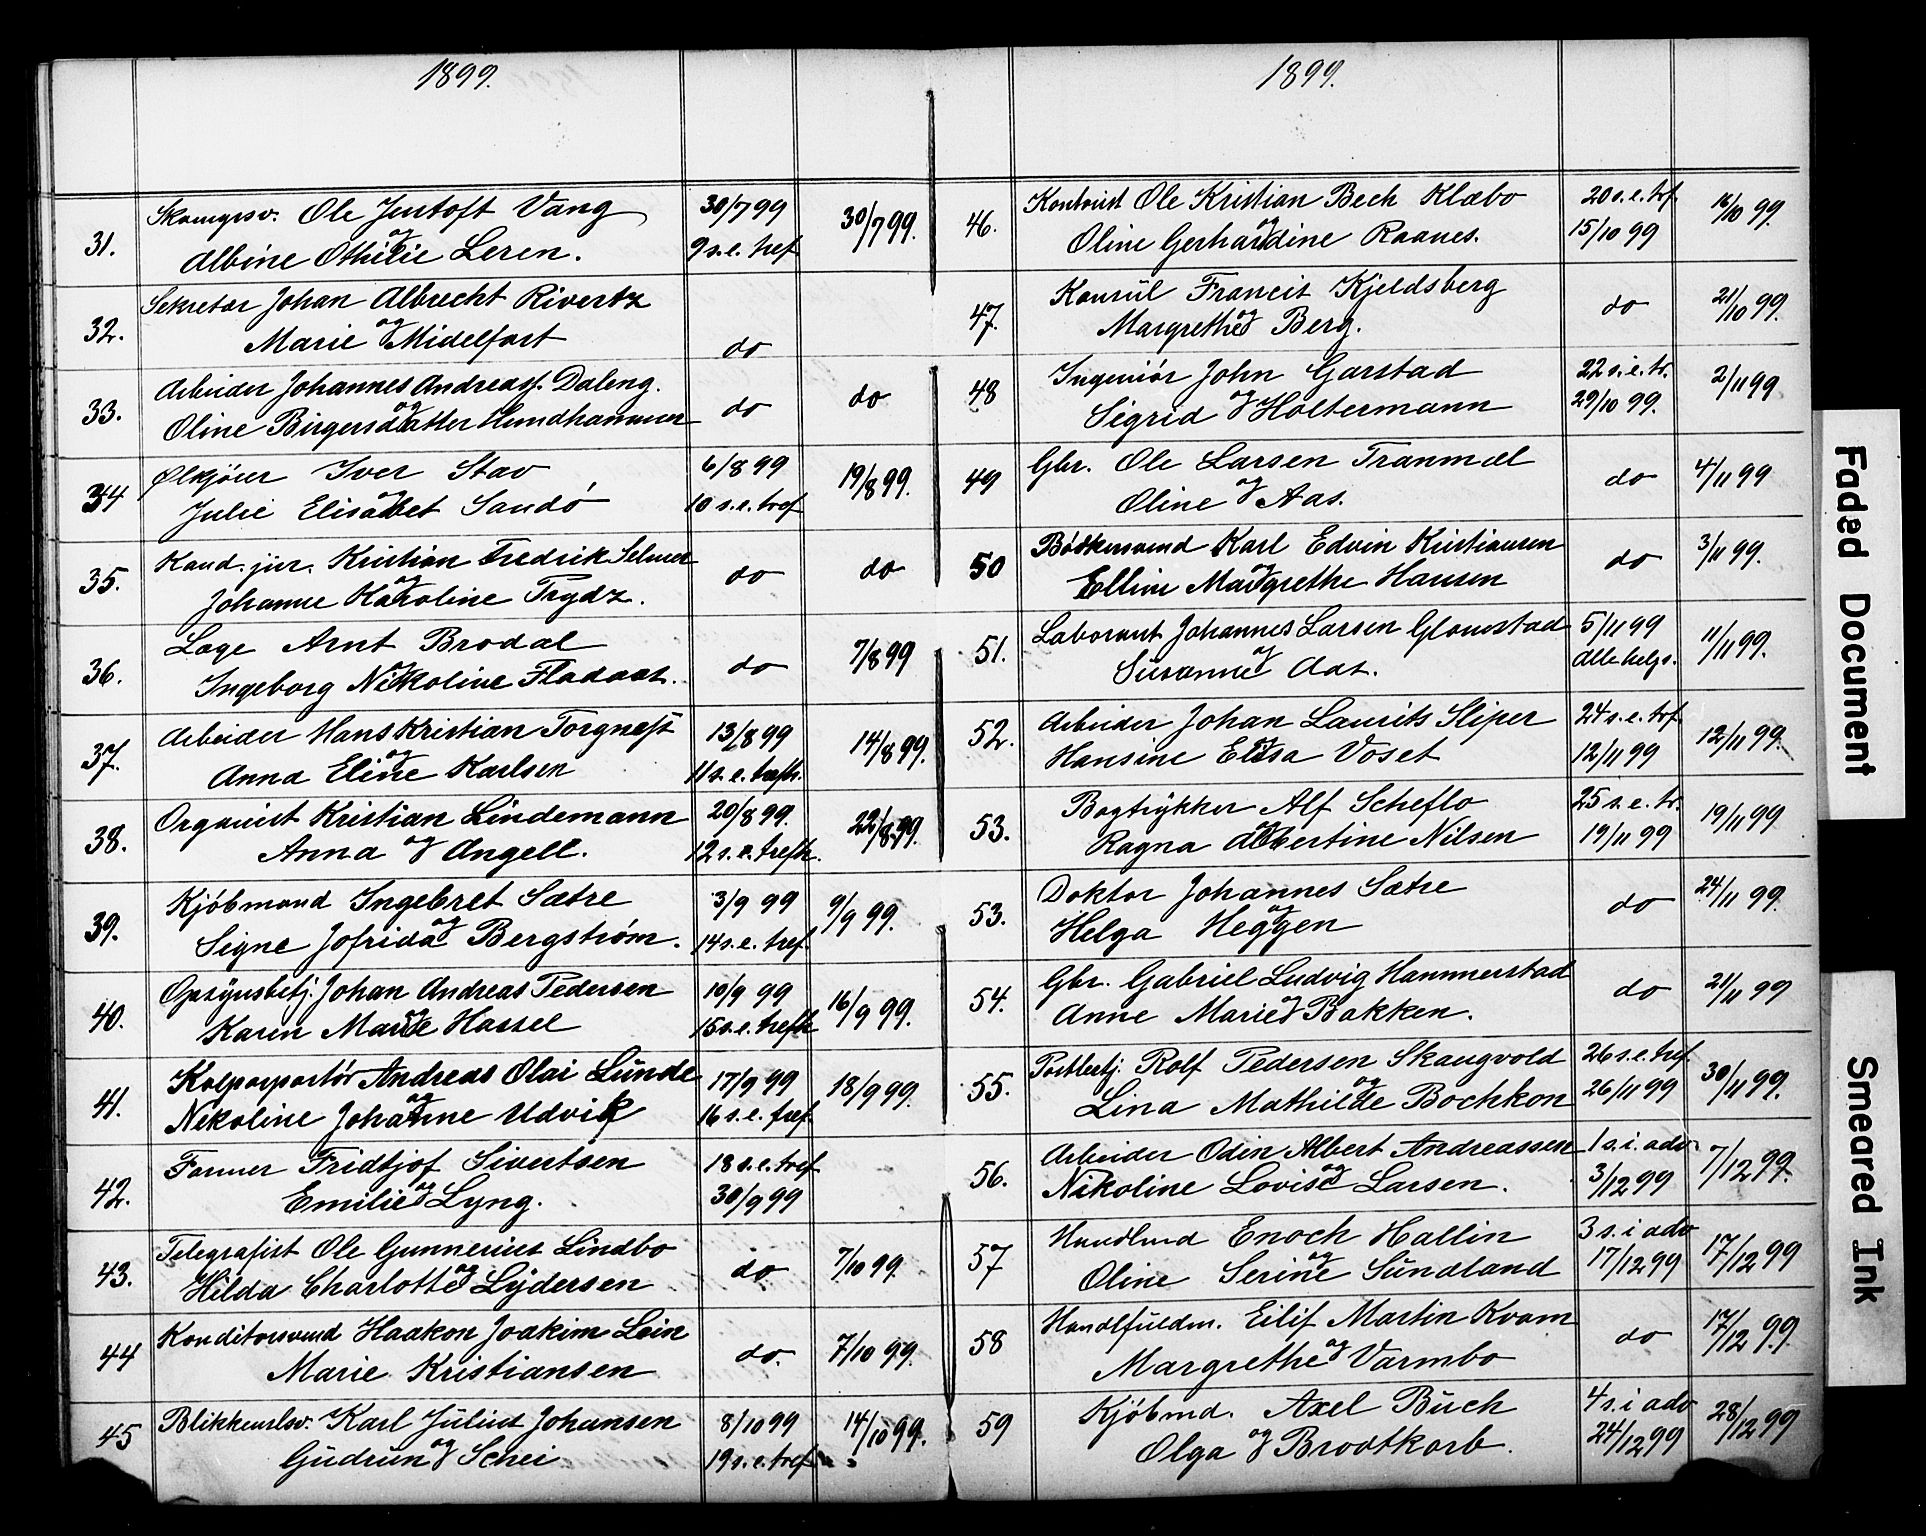 1899.
31. Skomgrsv. Ole Jentoft Vang 30/7 99 30/7 99.
og
Albine Othilie Leren. 9 s.e. tref
32. Sekretær Johan Albrecht Rivertz
og
Marie Midelfart do
33. Arbeider Johannes Andreas Daleng. do do
og
Oline Birgersdatter Hundhammer
34 Ølkjörer Iver Stav 6/8 99 19/8 99.
og
Julie Elisabet Sandö 10 s.e. tref
35. Kand. jur. Kristian Fredrik Selmer do do
og
Johanne Karoline Trydz.
36. Læge Arnt Brodal do 7/8 99
og
Ingeborg Nikoline Fladaas.
37. Arbeider Hans Kristian Torgnesst 13/8 99 14/8 99.
og
Anna Eline Karlsen 11 s.e. trefh.
38. Organist Kristian Lindemann 20/8 99. 22/8 99.
Anna og Angell. 12 s.e. trefh.
39. Kjöbmand Ingebret Sætre 3/9 99 9/9 99.
og
Signe Jofrida Bergström. 14 s.e. tref.
40. Opsynsbetj. Johan Andreas Pedersen 10/9 99 16/9 99.
og
Karen Marie Hassel 15 s.e. trefh
41. Kolporportör Andreas Olai Lunde 17/9 99 18/9 99.
og
Nikoline Johanne Udvik 16 s.e. tref.
42. Former Fridtjof Sivertsen 18 s.e. tref
Emilie og Lyng. 30/9 99
43. Telegrafist Ole Gunnerius Lindbo do 7/10 99.
og
Hilda Charlotte Lydersen
44 Konditorsvend Haakon Joakim Lein do. 7/10 99.
Marie Kristiansen
45 Blikkenslsv. Karl Julius Johansen 8/10 99 14/10 99.
Gudrun og Schei 19 s.e. tref
1899.
46. Kontorist Ole Kristian Bech Klæbo 20 s.e. tref. 16/10 99.
og
Oline Gerhardine Raanes. 15/10 99
47. Konsul Francis Kjeldsberg do 21/10 99.
og
Margrethe Berg.
48 Ingeniör John Garstad 22 s.e. tr. 2/11 99
Sigrid og Holtermann 29/10 99.
49 Gbr. Ole Larsen Tranmæl do 4/11 99
Oline og Aas.
50 Bödkersvend Karl Edvin Kristiansen do 3/11 99.
og
Elline Margrethe Hansen
51. Laborant Johannes Larsen Glomstad 5/11 99 11/11 99.
og
Susanne Aas. Allehelgs.
52. Arbeider Johan Laurits Sliper 24 s.e. tref 12/11 99.
og
Hansine Elisa Voset 12/11 99
53. Bogtrykker Alf Scheflo 25 s.e. tr. 19/11 99
og
Ragna Albertine Nilsen 19/11 99
53. Doktor Johannes Sætre do 24/11 99.
og
Helga Heggen
54. Gbr. Gabriel Ludvig Hammerstad do 21/11 99
Anne Marie og Bakken.
55. Postbetj. Rolf Pedersen Skaugvold 26 s.e. tref. 30/11 99.
og
Lina Mathilde Bochkon 26/11 99
56. Arbeider Odin Albert Andreassen 1 s. i adv 7/12 99.
og
Nikoline Lovise Larsen. 3/12 99
57 Handlend Enoch Hallin 3 s. i adv 17/12 99
og
Oline Serine Sundland 17/12 99
58 Handlfuldm. Eilif Martin Kvam do 17/12 99.
og
Margrethe Varmbo
59 Kjöbmd. Axel Buch 4 s. i adv 28/12 99
Olga og Brodtkorb. 24/12 99
Faded Document
Smeared Ink